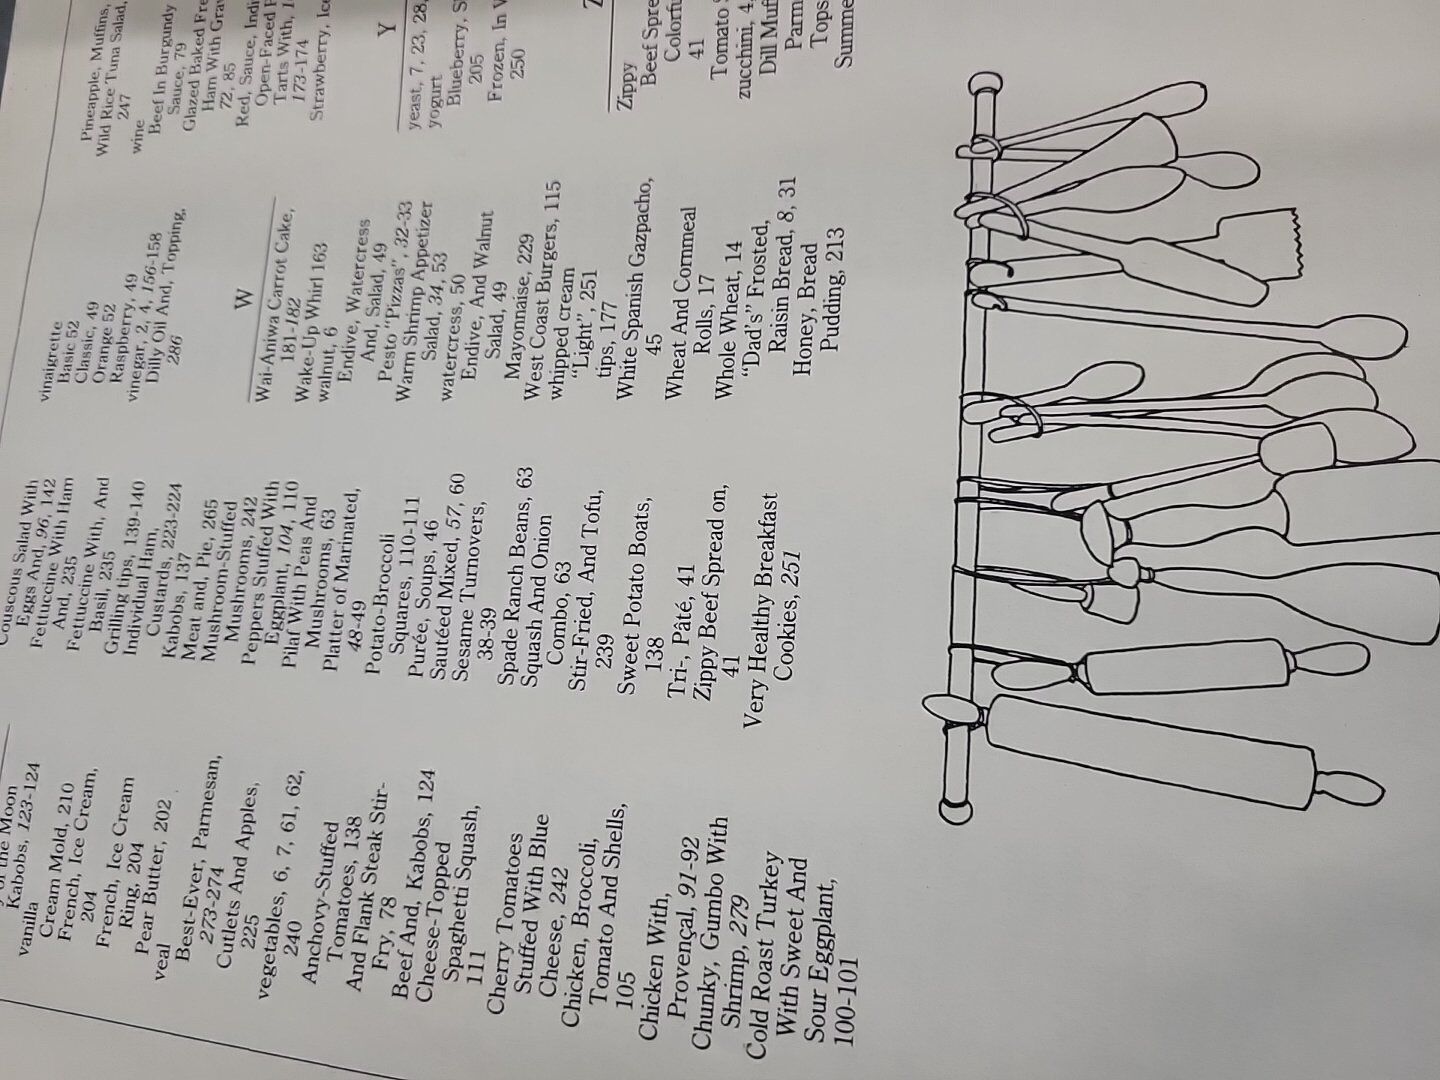 of the Moon
Kabobs, 123-124
vanilla
Cream Mold, 210
French, Ice Cream,
204
French, Ice Cream
Ring, 204
Pear Butter, 202
veal
Best-Ever, Parmesan,
273-274
Cutlets And Apples,
225
vegetables, 6, 7, 61, 62,
240
Anchovy-Stuffed
Tomatoes, 138
And Flank Steak Stir-
Fry, 78
Beef And, Kabobs, 124
Cheese-Topped
Spaghetti Squash,
111
Cherry Tomatoes
Stuffed With Blue
Cheese, 242
Chicken, Broccoli,
Tomato And Shells,
105
Chicken With,
Provençal, 91-92
Chunky, Gumbo With
Shrimp, 279
Cold Roast Turkey
With Sweet And
Sour Eggplant,
100-101
Couscous Salad With
Eggs And, 96, 142
Fettuccine With Ham
And, 235
Fettuccine With, And
Basil, 235
Grilling tips, 139-140
Individual Ham,
Custards, 223-224
Kabobs, 137
Meat and, Pie, 265
Mushroom-Stuffed
Mushrooms, 242
Peppers Stuffed With
Eggplant, 104, 110
Pilaf With Peas And
Mushrooms, 63
Platter of Marinated,
48-49
Potato-Broccoli
Squares, 110-111
Purée, Soups, 46
Sautéed Mixed, 57, 60
Sesame Turnovers,
38-39
Spade Ranch Beans, 63
Squash And Onion
Combo, 63
Stir-Fried, And Tofu,
239
Sweet Potato Boats,
138
Tri-, Pâté, 41
Zippy Beef Spread on,
41
Very Healthy Breakfast
Cookies, 251
vinaigrette
Basic 52
Classic, 49
Orange 52
Raspberry, 49
vinegar, 2, 4, 156-158
Dilly Oil And, Topping,
286
W
Wai-Aniwa Carrot Cake,
181-182
Wake-Up Whirl 163
walnut, 6
Endive, Watercress
And, Salad, 49
Pesto "Pizzas", 32-33
Warm Shrimp Appetizer
Salad, 34, 53
watercress, 50
Endive, And Walnut
Salad, 49
Mayonnaise, 229
West Coast Burgers, 115
whipped cream
"Light", 251
tips, 177
White Spanish Gazpacho,
45
Wheat And Cornmeal
Rolls, 17
Whole Wheat, 14
"Dad's" Frosted,
Raisin Bread, 8, 31
Honey, Bread
Pudding, 213
Pineapple, Muffins,
Wild Rice Tuna Salad,
247
wine
Beef In Burgundy
Sauce, 79
Glazed Baked Fre
Ham With Gra
72, 85
Red, Sauce, Indi
Open-Faced
Tarts With,
173-174
Strawberry, Ice
Y
yeast, 7, 23, 28,
yogurt
Blueberry, S
205
Frozen, In
250
Z
Zippy
Beef Spre
Colorf
41
Tomato
zucchini, 4,
Dill Muf
Parm
Tops
Summe